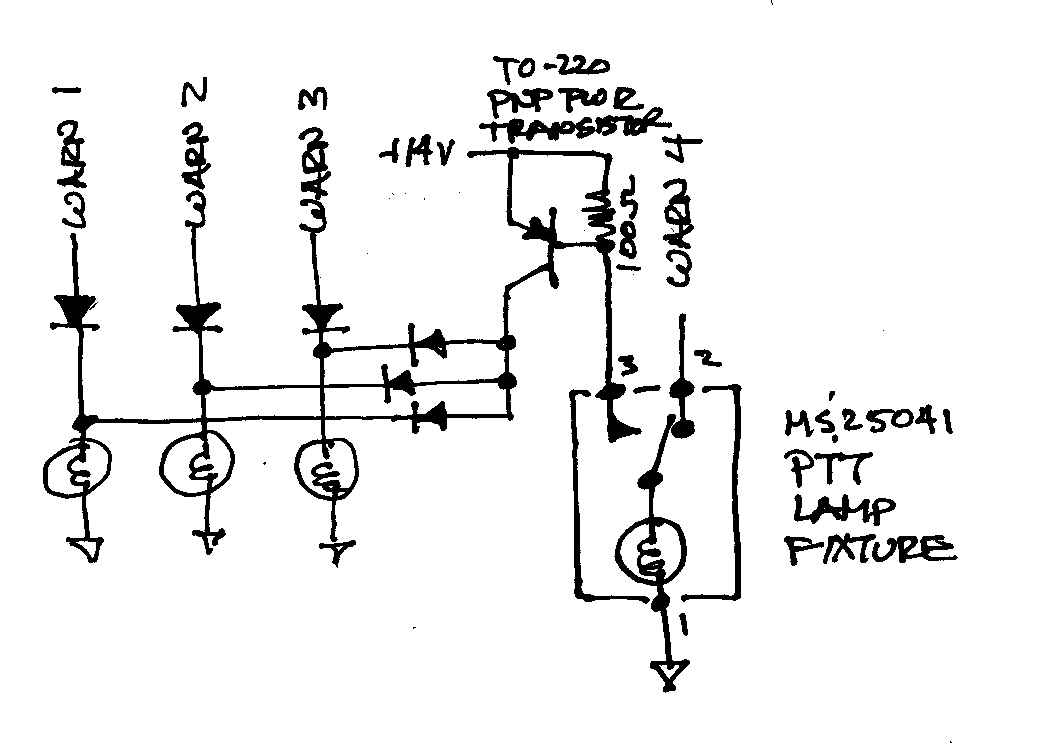 WARN 1
WARN 2
WARN 3
TO-220
PNP PWR
TRANSISTOR
+14V
100Ω
WARN 4
3
2
MS25041
PTT
LAMP
FIXTURE
1